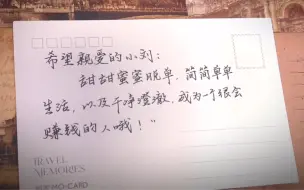 希望親爱的小刘：
甜甜蜜蜜脱单，简简单单
生活，以及干净澄澈，成为一个很会
赚钱的人哦！”
TRAVEL
MEMORIES